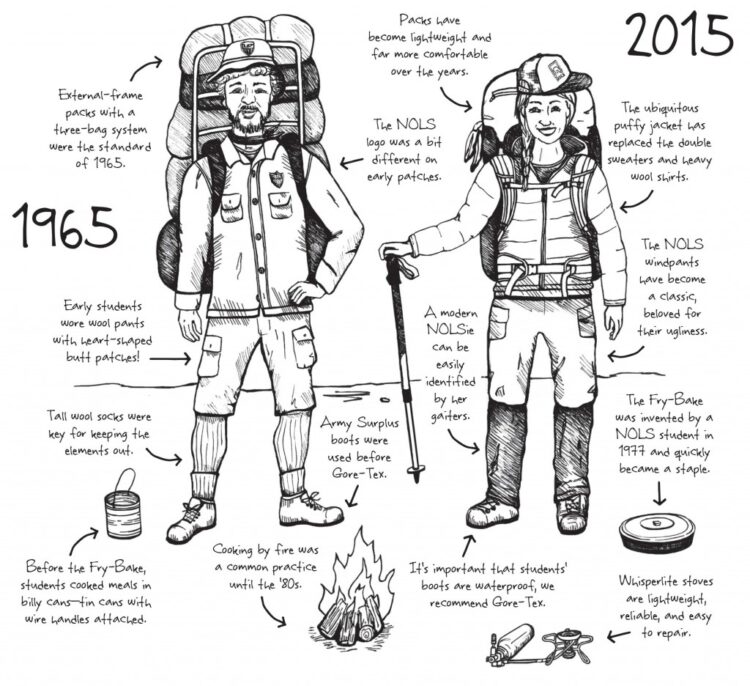 2015
Packs have
become lightweight and
far more comfortable
over the years.
External-frame
packs with a
three-bag system
were the standard
of 1965.
The NOLS
logo was a bit
different on
early patches.
The ubiquitous
puffy jacket has
replaced the double
sweaters and heavy
wool shirts.
1965
The NOLS
windpants
have become
a classic,
beloved for
their ugliness.
Early students
wore wool pants
with heart-shaped
butt patches!
A modern
NOLSie
can be
easily
identified
by her
gaiters.
Tall wool socks were
key for keeping the
elements out.
Army Surplus
boots were
used before
Gore-Tex.
The Fry-Bake
was invented by a
NOLS student in
1977 and quickly
became a staple.
Before the Fry-Bake,
students cooked meals in
billy cans—tin cans with
wire handles attached.
Cooking by fire was
a common practice
until the '80s.
It's important that students'
boots are waterproof, we
recommend Gore-Tex.
Whisperlite stoves
are lightweight,
reliable, and easy
to repair.